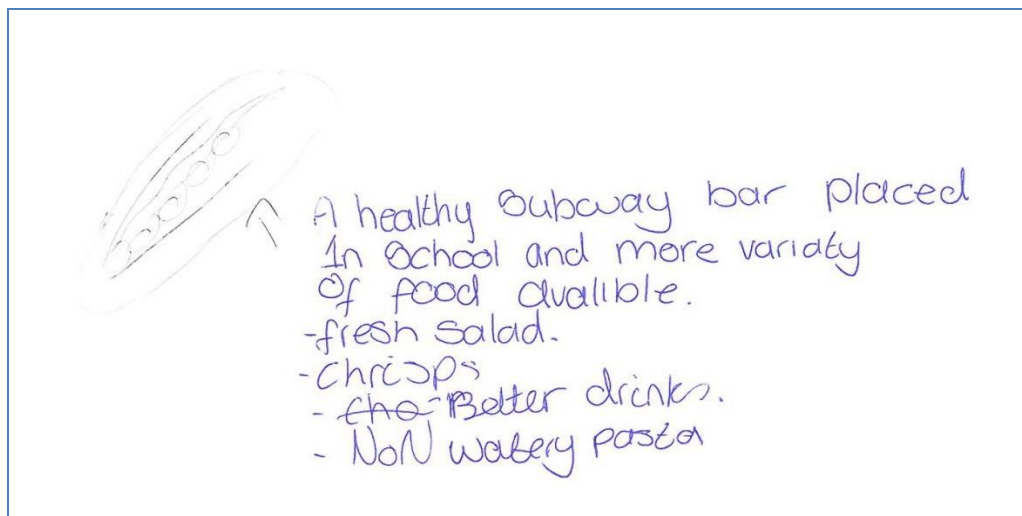 A healthy Subway bar placed
In School and more variaty
Of food avalible.
-fresh salad.
-Chrisps
- ~~Cho~~ Better drinks.
- NoN watery pasta